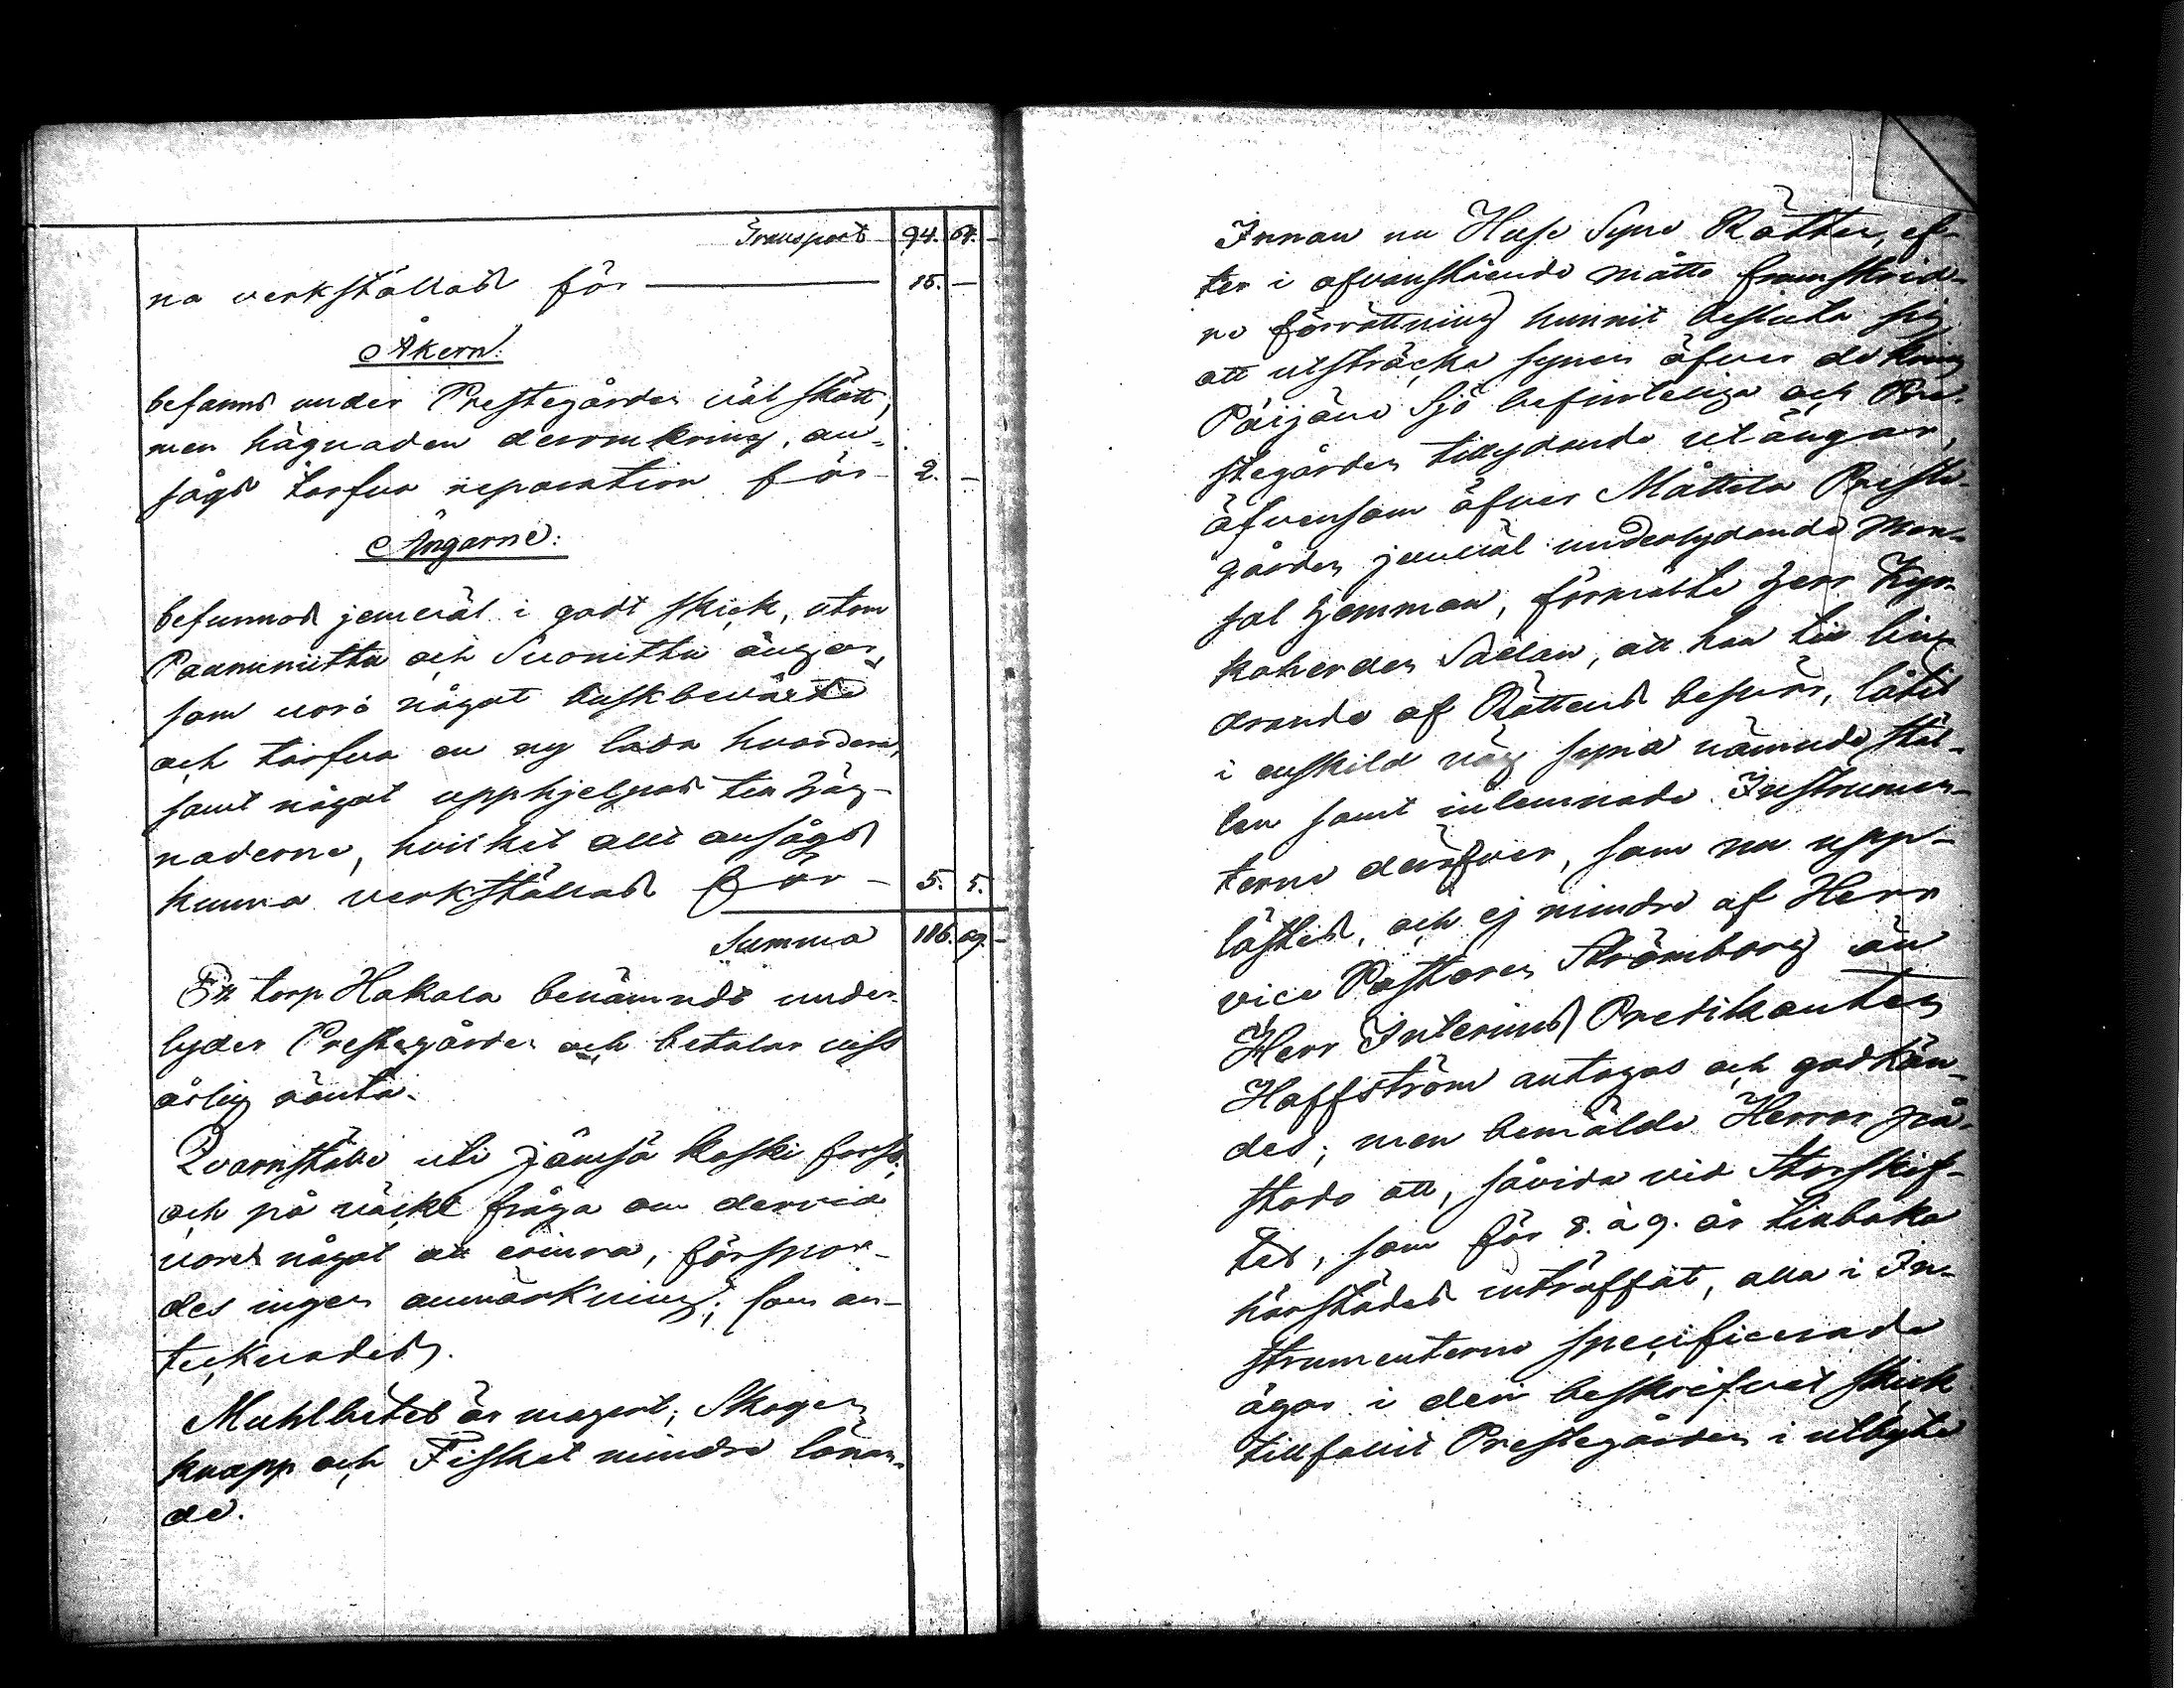 Transport 94. 64. -
na verkställas för — 15. -
Åkern:
befanns under Prestegården väl skött,
men hägnaden deromkring, an-
sågs tarfva reparation för - 2. -
Ängarne:
befunnos jemväl i godt skick, utom
Paununiittu och Suonittu ängar,
som voro något buskbevexte
och tarfva en ny lada hvardera,
samt något upphjelpas till häg-
naderne, hvilket allt ansågs
kunna verkställas för - 5. 5.
Summa 116. 69. -
Ett torp Hakala benämndt under-
lyder Prestegården och betalar viss
årlig ränta.
Qvarnställe uti Jämsä koski forss,
och på väckt fråga om dervid
vore något att erinra, förspor-
des ingen anmärkning; som an-
tecknades.
Muhlbetet är magert, Skogen
knapp och Fisket mindre lönan-
de.
Innan nu Huse Syns Rätten, ef-
ter i ofvanstående måtto framskrid-
ne förrättning hunnit besluta sig
att utsträcka synen öfver de kring
Päijäne Sjö befinteliga och Pre-
stegården tillydande utängar,
äfvensom öfver Måttila Preste-
gården jemväl underlydande Man-
tal hemman, förmälte Herr Kyr-
koherden, att han till lind-
rande af Rättens besvär, låtit
i enskild väg syna nämnde stäl-
len samt inlemnade Instrumen-
terne deröfver, som nu upp-
lästes, och ej mindre af Herr
vice Pastoren Strömborg än
Herr Interims Predikanten
Haffström antogos och godkän-
des; men bemälde Herrar på-
stodo att, såvida vid Storskif-
tet, som för 8. à 9. år tillbaka
härstädes inträffat, alla i In-
strumenterne specificerade
ägor i den beskrifvet skick
tillfallit Prestegården i utbyte